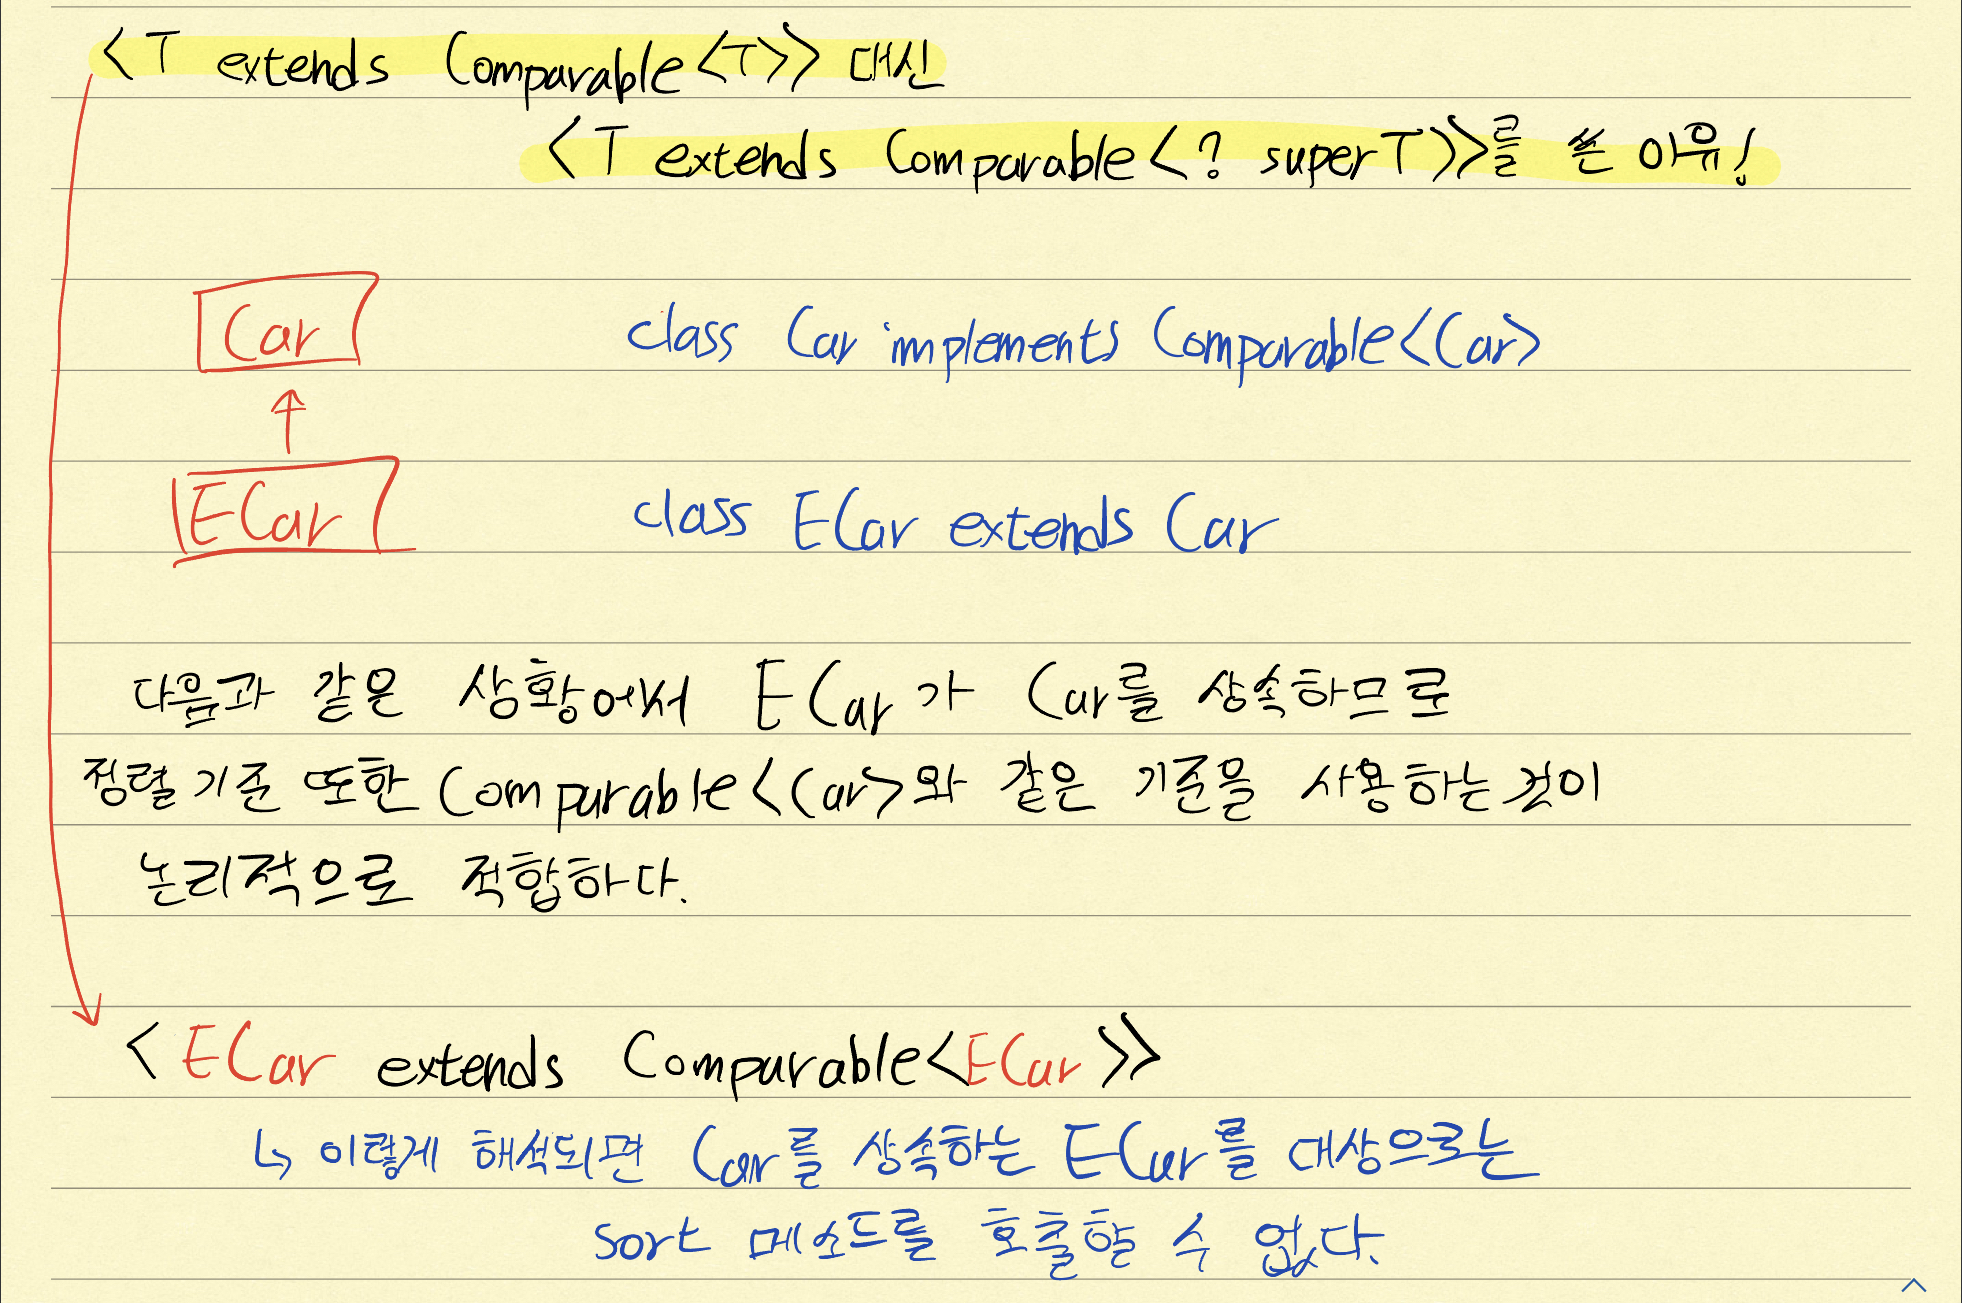 <T extends Comparable<T>> 대신
<T extends Comparable<? super T>>를 쓴 이유!
Car
class Car implements Comparable<Car>
ECar
class ECar extends Car
다음과 같은 상황에서 ECar가 Car를 상속하므로
정렬 기준 또한 Comparable<Car>와 같은 기준을 사용하는 것이
논리적으로 적합하다.
<ECar extends Comparable<ECar>>
↳ 이렇게 해석되면 Car를 상속하는 ECar를 대상으로는
sort 메소드를 호출할 수 없다.